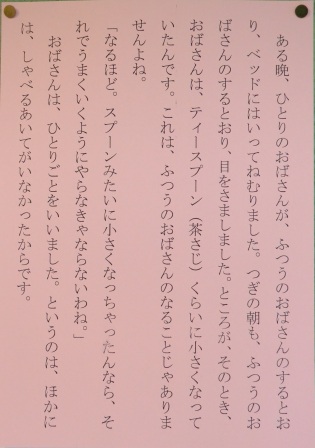 ある晩、ひとりのおばさんが、ふつうのおばさんのするとお
り、ベッドにはいってねむりました。つぎの朝も、ふつうのお
ばさんのするとおり、目をさましました。ところが、そのとき、
おばさんは、ティースプーン（茶さじ）くらいに小さくなって
いたんです。これは、ふつうのおばさんのなることじゃありま
せんよね。
「なるほど。スプーンみたいに小さくなっちゃったんなら、そ
れでうまくいくようにやらなきゃならないわね。」
おばさんは、ひとりごとをいいました。というのは、ほかに
は、しゃべるあいてがいなかったからです。